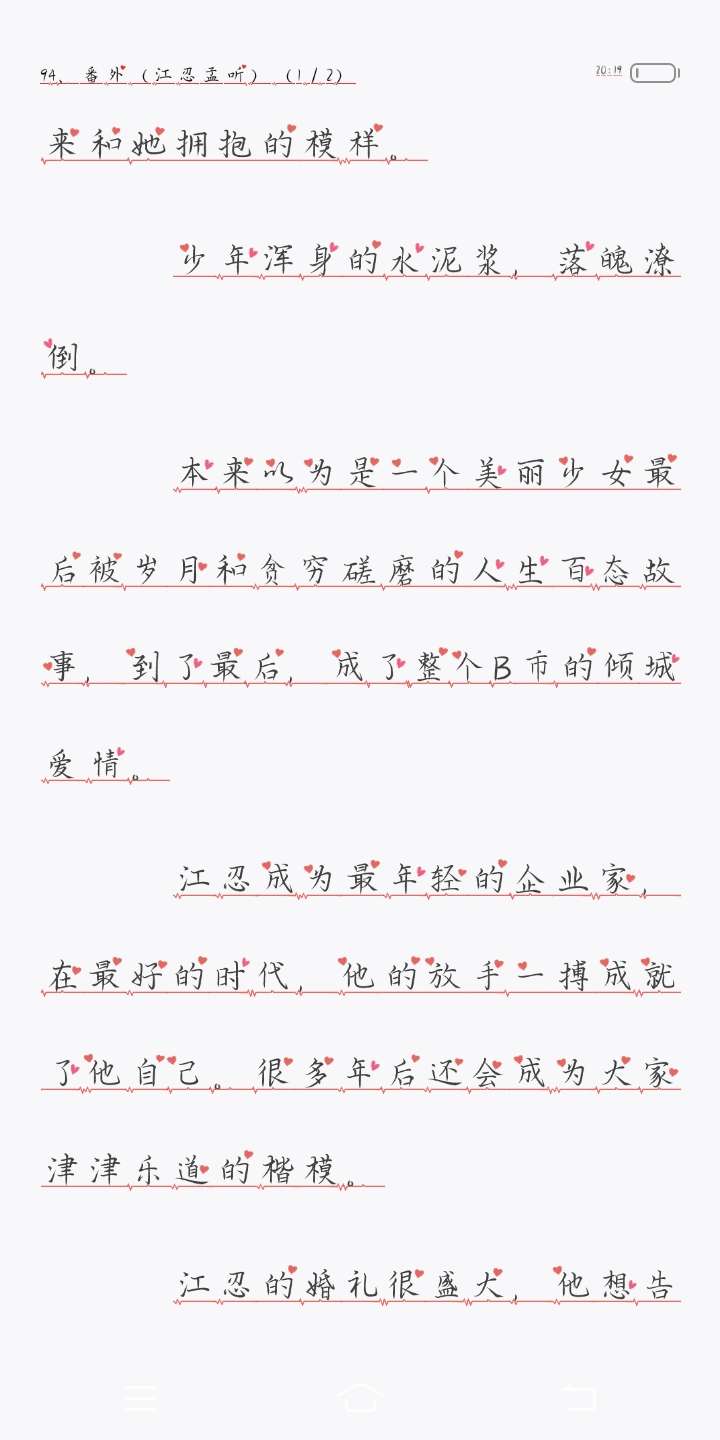 94、番外（江忍孟听）（1/2） 20:19
来和她拥抱的模样。
少年浑身的水泥浆，落魄潦
倒。
本来以为是一个美丽少女最
后被岁月和贫穷磋磨的人生百态故
事，到了最后，成了整个B市的倾城
爱情。
江忍成为最年轻的企业家，
在最好的时代，他的放手一搏成就
了他自己。很多年后还会成为大家
津津乐道的楷模。
江忍的婚礼很盛大，他想告